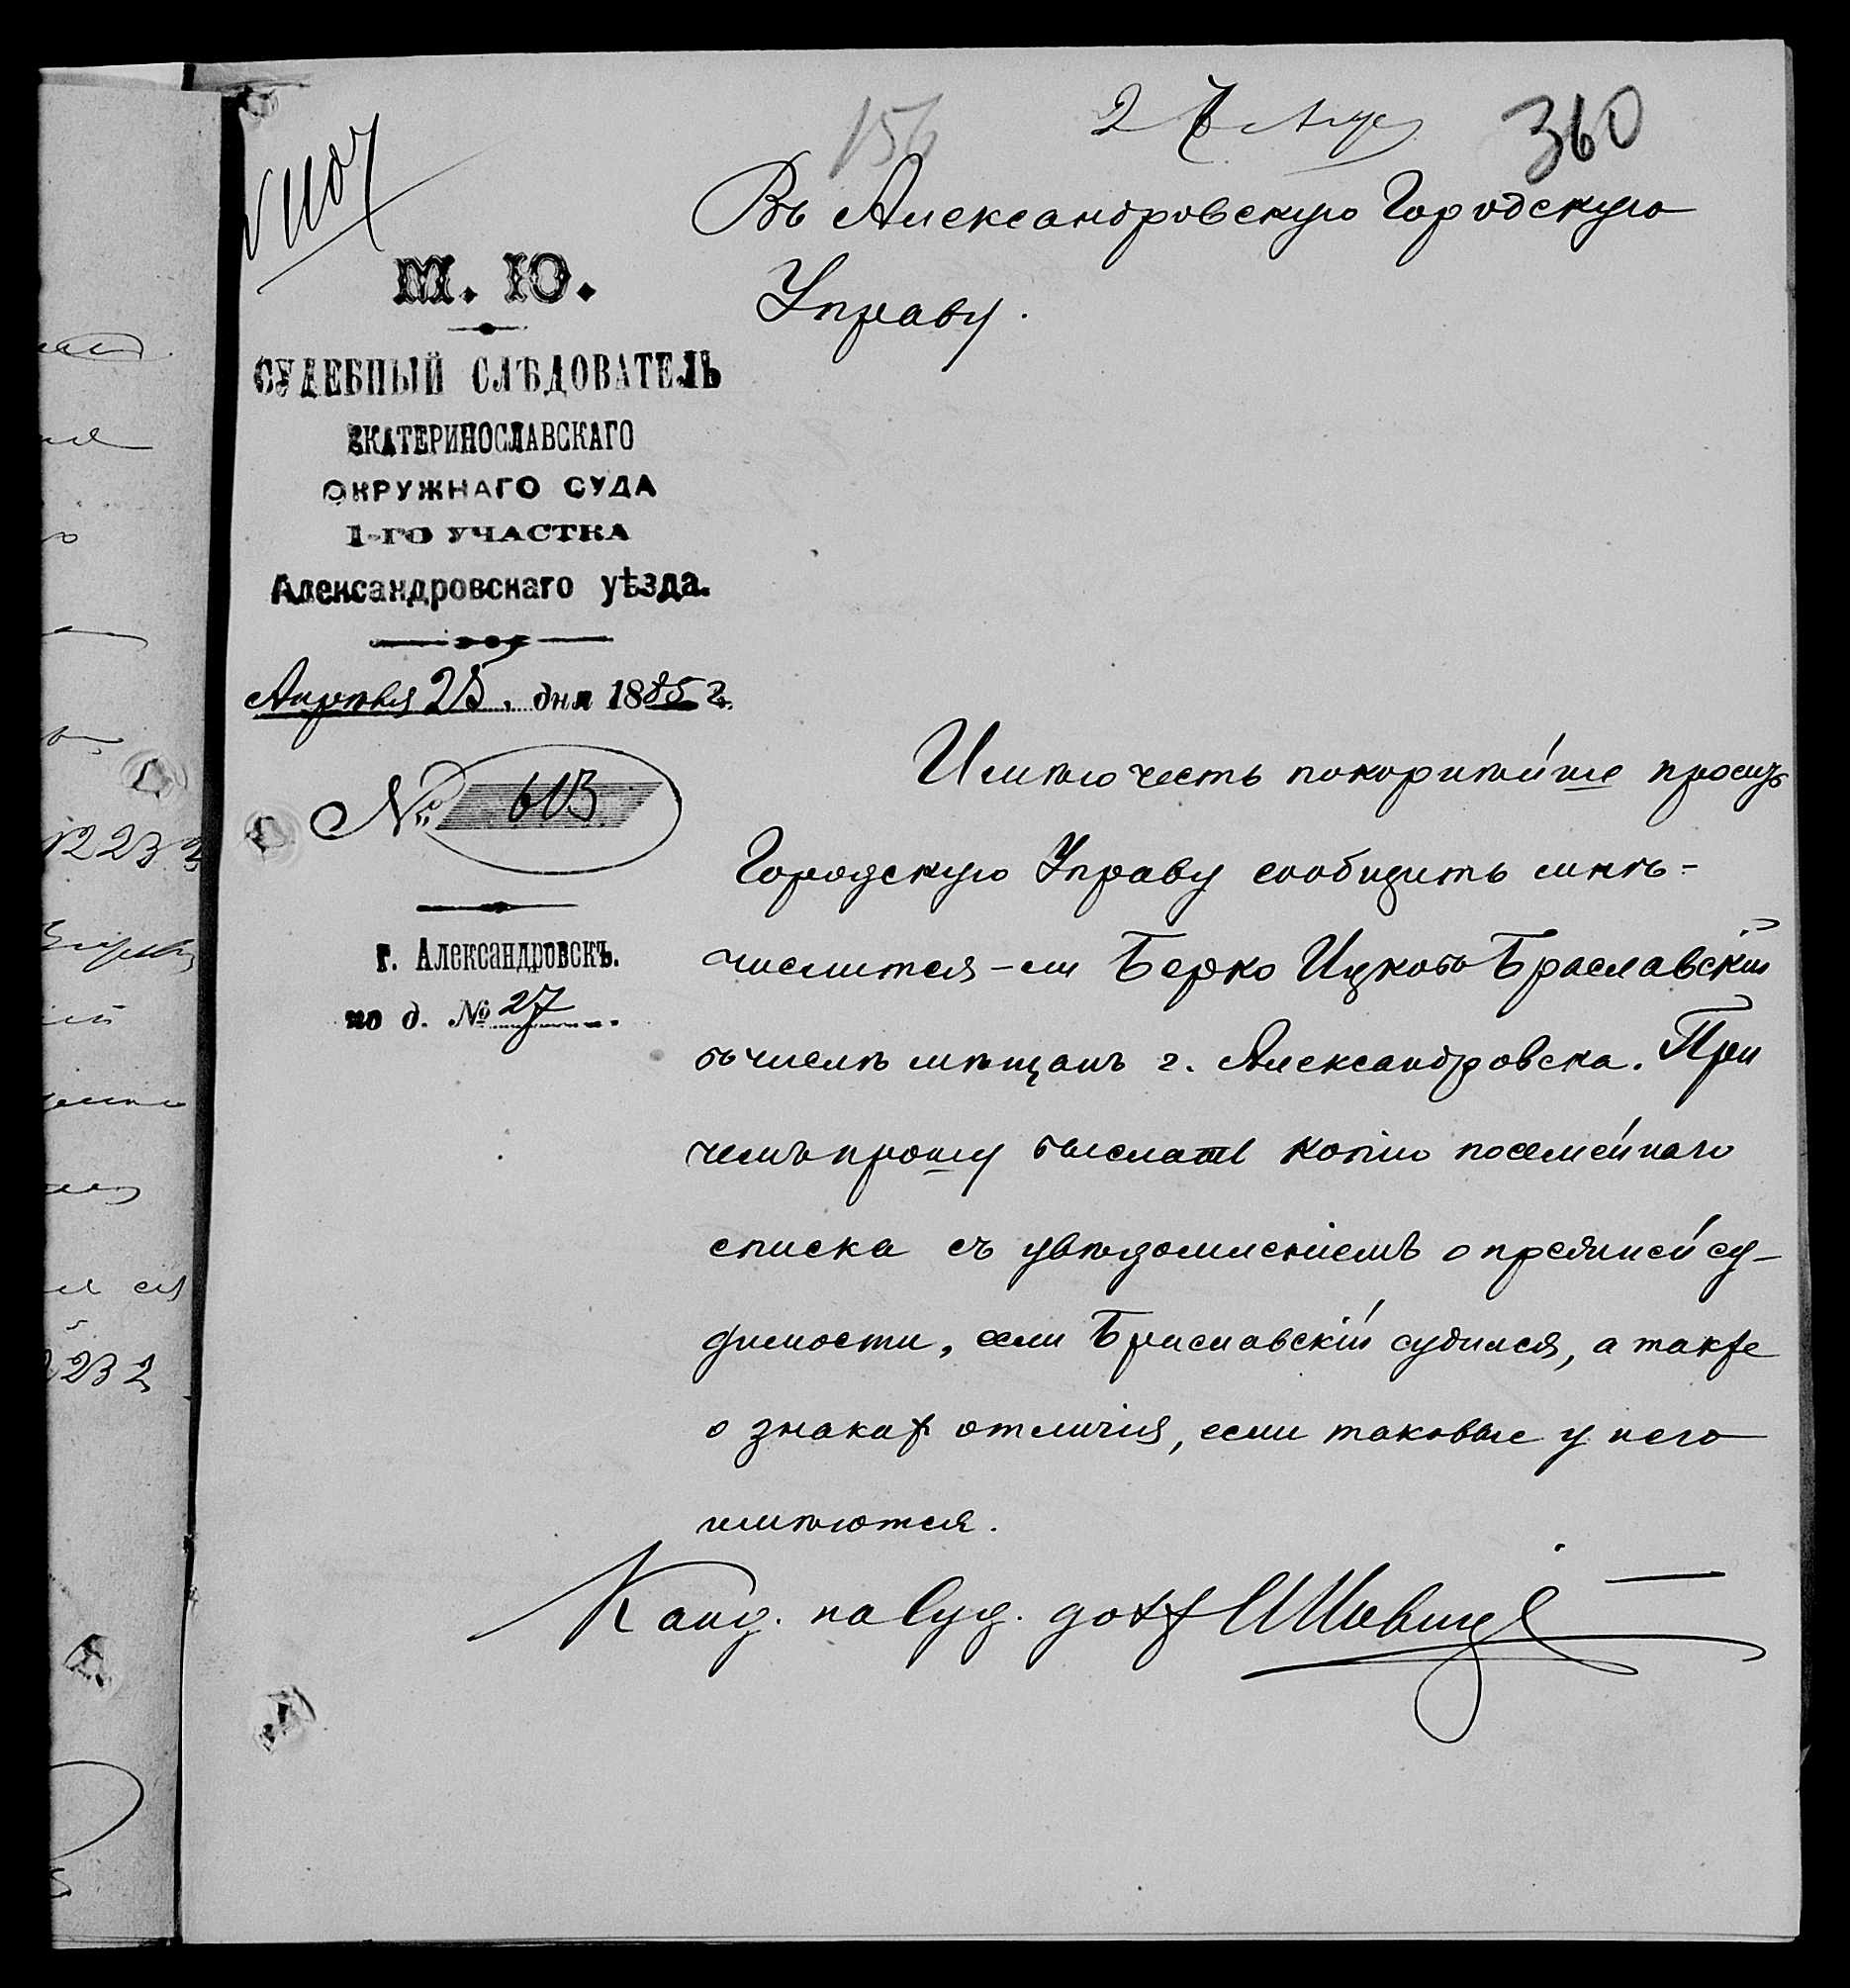 156
360
Въ Александровскую Городскую
Управу.
М. Ю.
СУДЕБНЫЙ СЛѢДОВАТЕЛЬ
ЕКАТЕРИНОСЛАВСКАГО
ОКРУЖНАГО СУДА
1-ГО УЧАСТКА
Александровскаго уѣзда.
Апрѣля 25 дня 1885 г.
№ 613
г. Александровскъ.
по д. № 27
Имѣю честь покорнѣйше просить
Городскую Управу сообщить мнѣ-
числится-ли Берко Ицковъ Браславскій
въ числѣ мѣщанъ г. Александровска. При
чемъ прошу выслать копію посемейнаго
списка съ увѣдомленіемъ о прежней су-
димости, если Браславскій судился, а также
о знакахъ отличія, если таковые у него
имѣются.
Канд. на Суд. долж